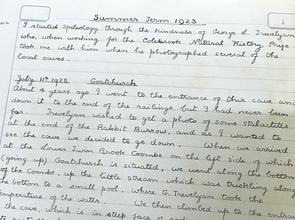 Summer Term 1923
1
I started speleology through the kindness of George d. Trevelyan
who, when working for the Colebrook Natural History Prize
took me with him when he photographed several of the
local caves.
July 11th 1923. Goatchurch
About 4 years ago I went to the entrance of this cave and
down it to the end of the railings but I had never been
far. Trevelyan wished to get a photo of some stalactites
at the end of the Rabbit Burrow, and as I wanted to
see the cave we decided to go down. When we arrived
at the lower Twin Brook Coombe on the left side of which
(going up) Goatchurch is situated, we went along the bottom
of the Coombe, up the little stream which was trickling along
the bottom to a small pool, where G. Trevelyan took the
temperature of the water. We then climbed up to the entrance
the cave, which is in steep face of